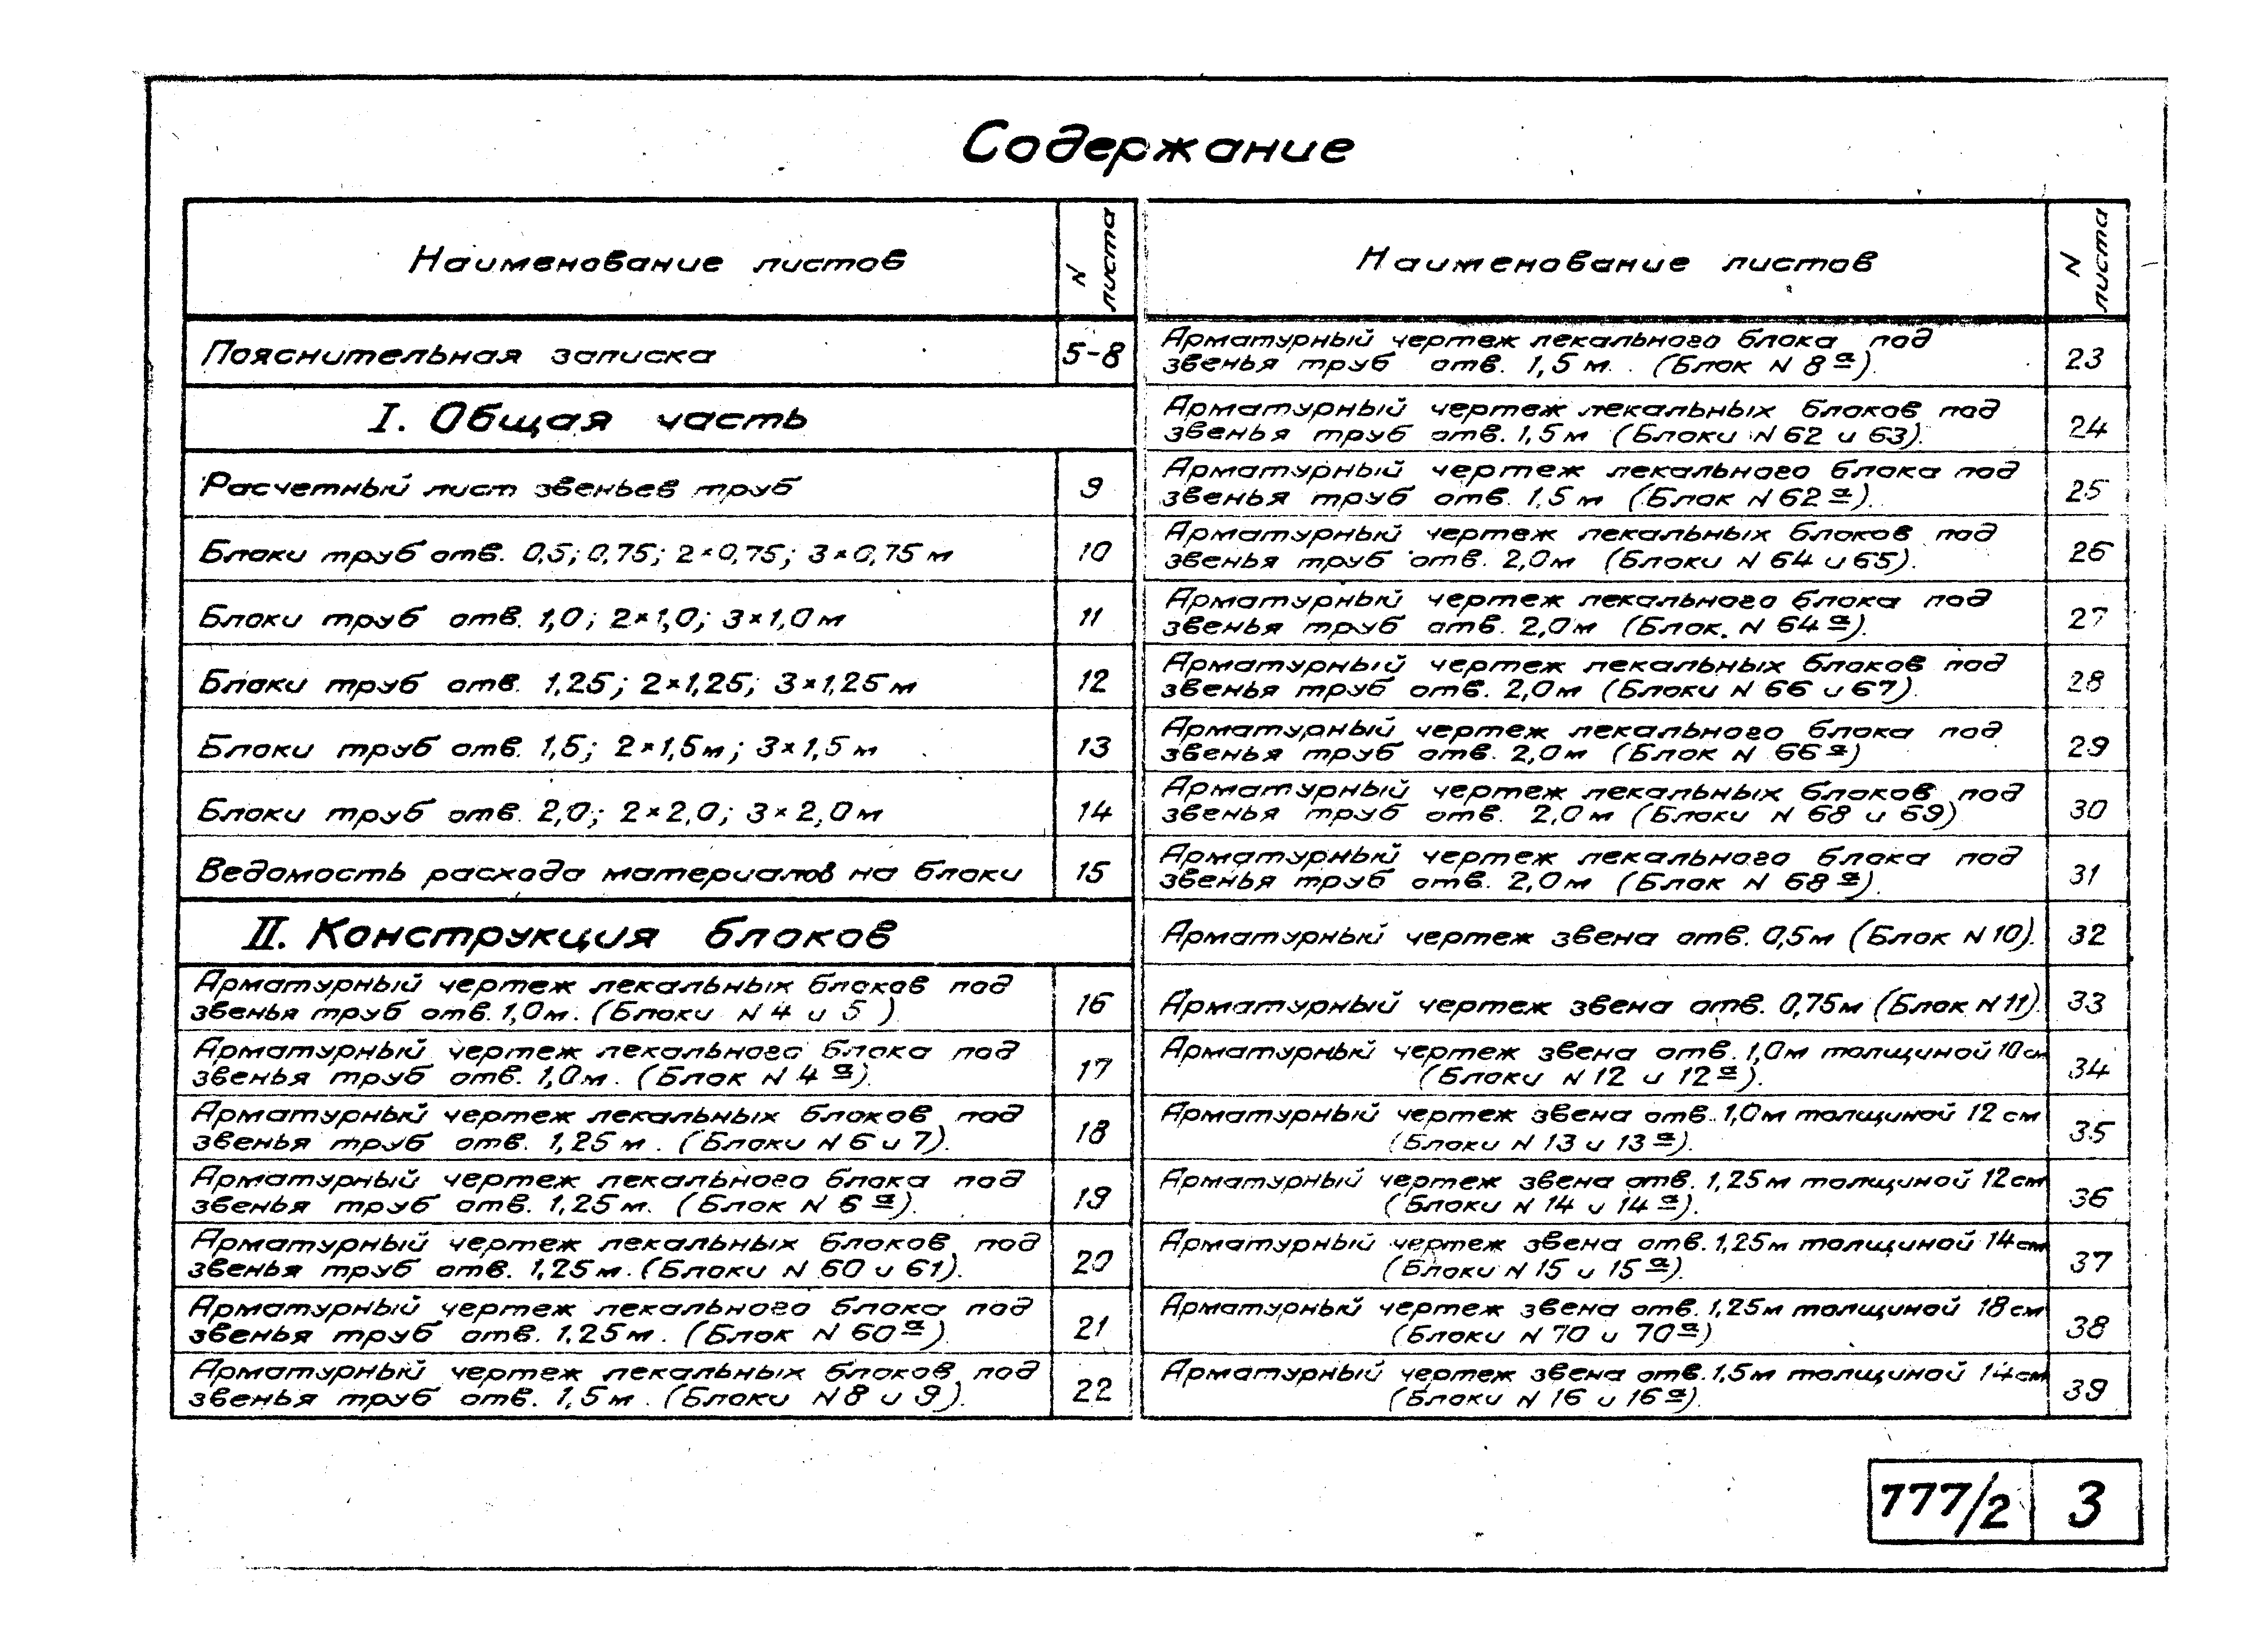 Содержание
Наименование листов
N листа
Пояснительная записка 5-8
I. Общая часть
Расчетный лист звеньев труб 9
Блоки труб отв. 0,5; 0,75; 2×0,75; 3×0,75 м 10
Блоки труб отв. 1,0; 2×1,0; 3×1,0 м 11
Блоки труб отв. 1,25; 2×1,25; 3×1,25 м 12
Блоки труб отв. 1,5; 2×1,5 м; 3×1,5 м 13
Блоки труб отв. 2,0; 2×2,0; 3×2,0 м 14
Ведомость расхода материалов на блоки 15
II. Конструкция блоков
Арматурный чертеж лекальных блоков под
звенья труб отв. 1,0 м. (Блоки N 4 и 5 ) 16
Арматурный чертеж лекального блока под
звенья труб отв. 1,0 м. (Блок N 4ª). 17
Арматурный чертеж лекальных блоков под
звенья труб отв. 1,25 м. (Блоки N 6 и 7). 18
Арматурный чертеж лекального блока под
звенья труб отв. 1,25 м. (Блок N 6ª). 19
Арматурный чертеж лекальных блоков под
звенья труб отв. 1,25 м. (Блоки N 60 и 61). 20
Арматурный чертеж лекального блока под
звенья труб отв. 1,25 м. (Блок N 60ª). 21
Арматурный чертеж лекальных блоков под
звенья труб отв. 1,5 м. (Блоки N 8 и 9). 22
Наименование листов
N листа
Арматурный чертеж лекального блока под
звенья труб отв. 1,5 м. (Блок N 8ª). 23
Арматурный чертеж лекальных блоков под
звенья труб отв. 1,5 м (Блоки N 62 и 63). 24
Арматурный чертеж лекального блока под
звенья труб отв. 1,5 м (Блок N 62ª). 25
Арматурный чертеж лекальных блоков под
звенья труб отв. 2,0 м (Блоки N 64 и 65). 26
Арматурный чертеж лекального блока под
звенья труб отв. 2,0 м (Блок. N 64ª). 27
Арматурный чертеж лекальных блоков под
звенья труб отв. 2,0 м (Блоки N 66 и 67). 28
Арматурный чертеж лекального блока под
звенья труб отв. 2,0 м (Блок N 66ª) 29
Арматурный чертеж лекальных блоков под
звенья труб отв. 2,0 м (Блоки N 68 и 69) 30
Арматурный чертеж лекального блока под
звенья труб отв. 2,0 м (Блок N 68ª). 31
Арматурный чертеж звена отв. 0,5 м (Блок N 10). 32
Арматурный чертеж звена отв. 0,75 м (Блок N 11). 33
Арматурный чертеж звена отв. 1,0 м толщиной 10 см
(Блоки N 12 и 12ª). 34
Арматурный чертеж звена отв. 1,0 м толщиной 12 см
(Блоки N 13 и 13ª). 35
Арматурный чертеж звена отв. 1,25 м толщиной 12 см
(Блоки N 14 и 14ª). 36
Арматурный чертеж звена отв. 1,25 м толщиной 14 см
(Блоки N 15 и 15ª). 37
Арматурный чертеж звена отв. 1,25 м толщиной 18 см
(Блоки N 70 и 70ª) 38
Арматурный чертеж звена отв. 1,5 м толщиной 14 см
(Блоки N 16 и 16ª). 39
777/2 3